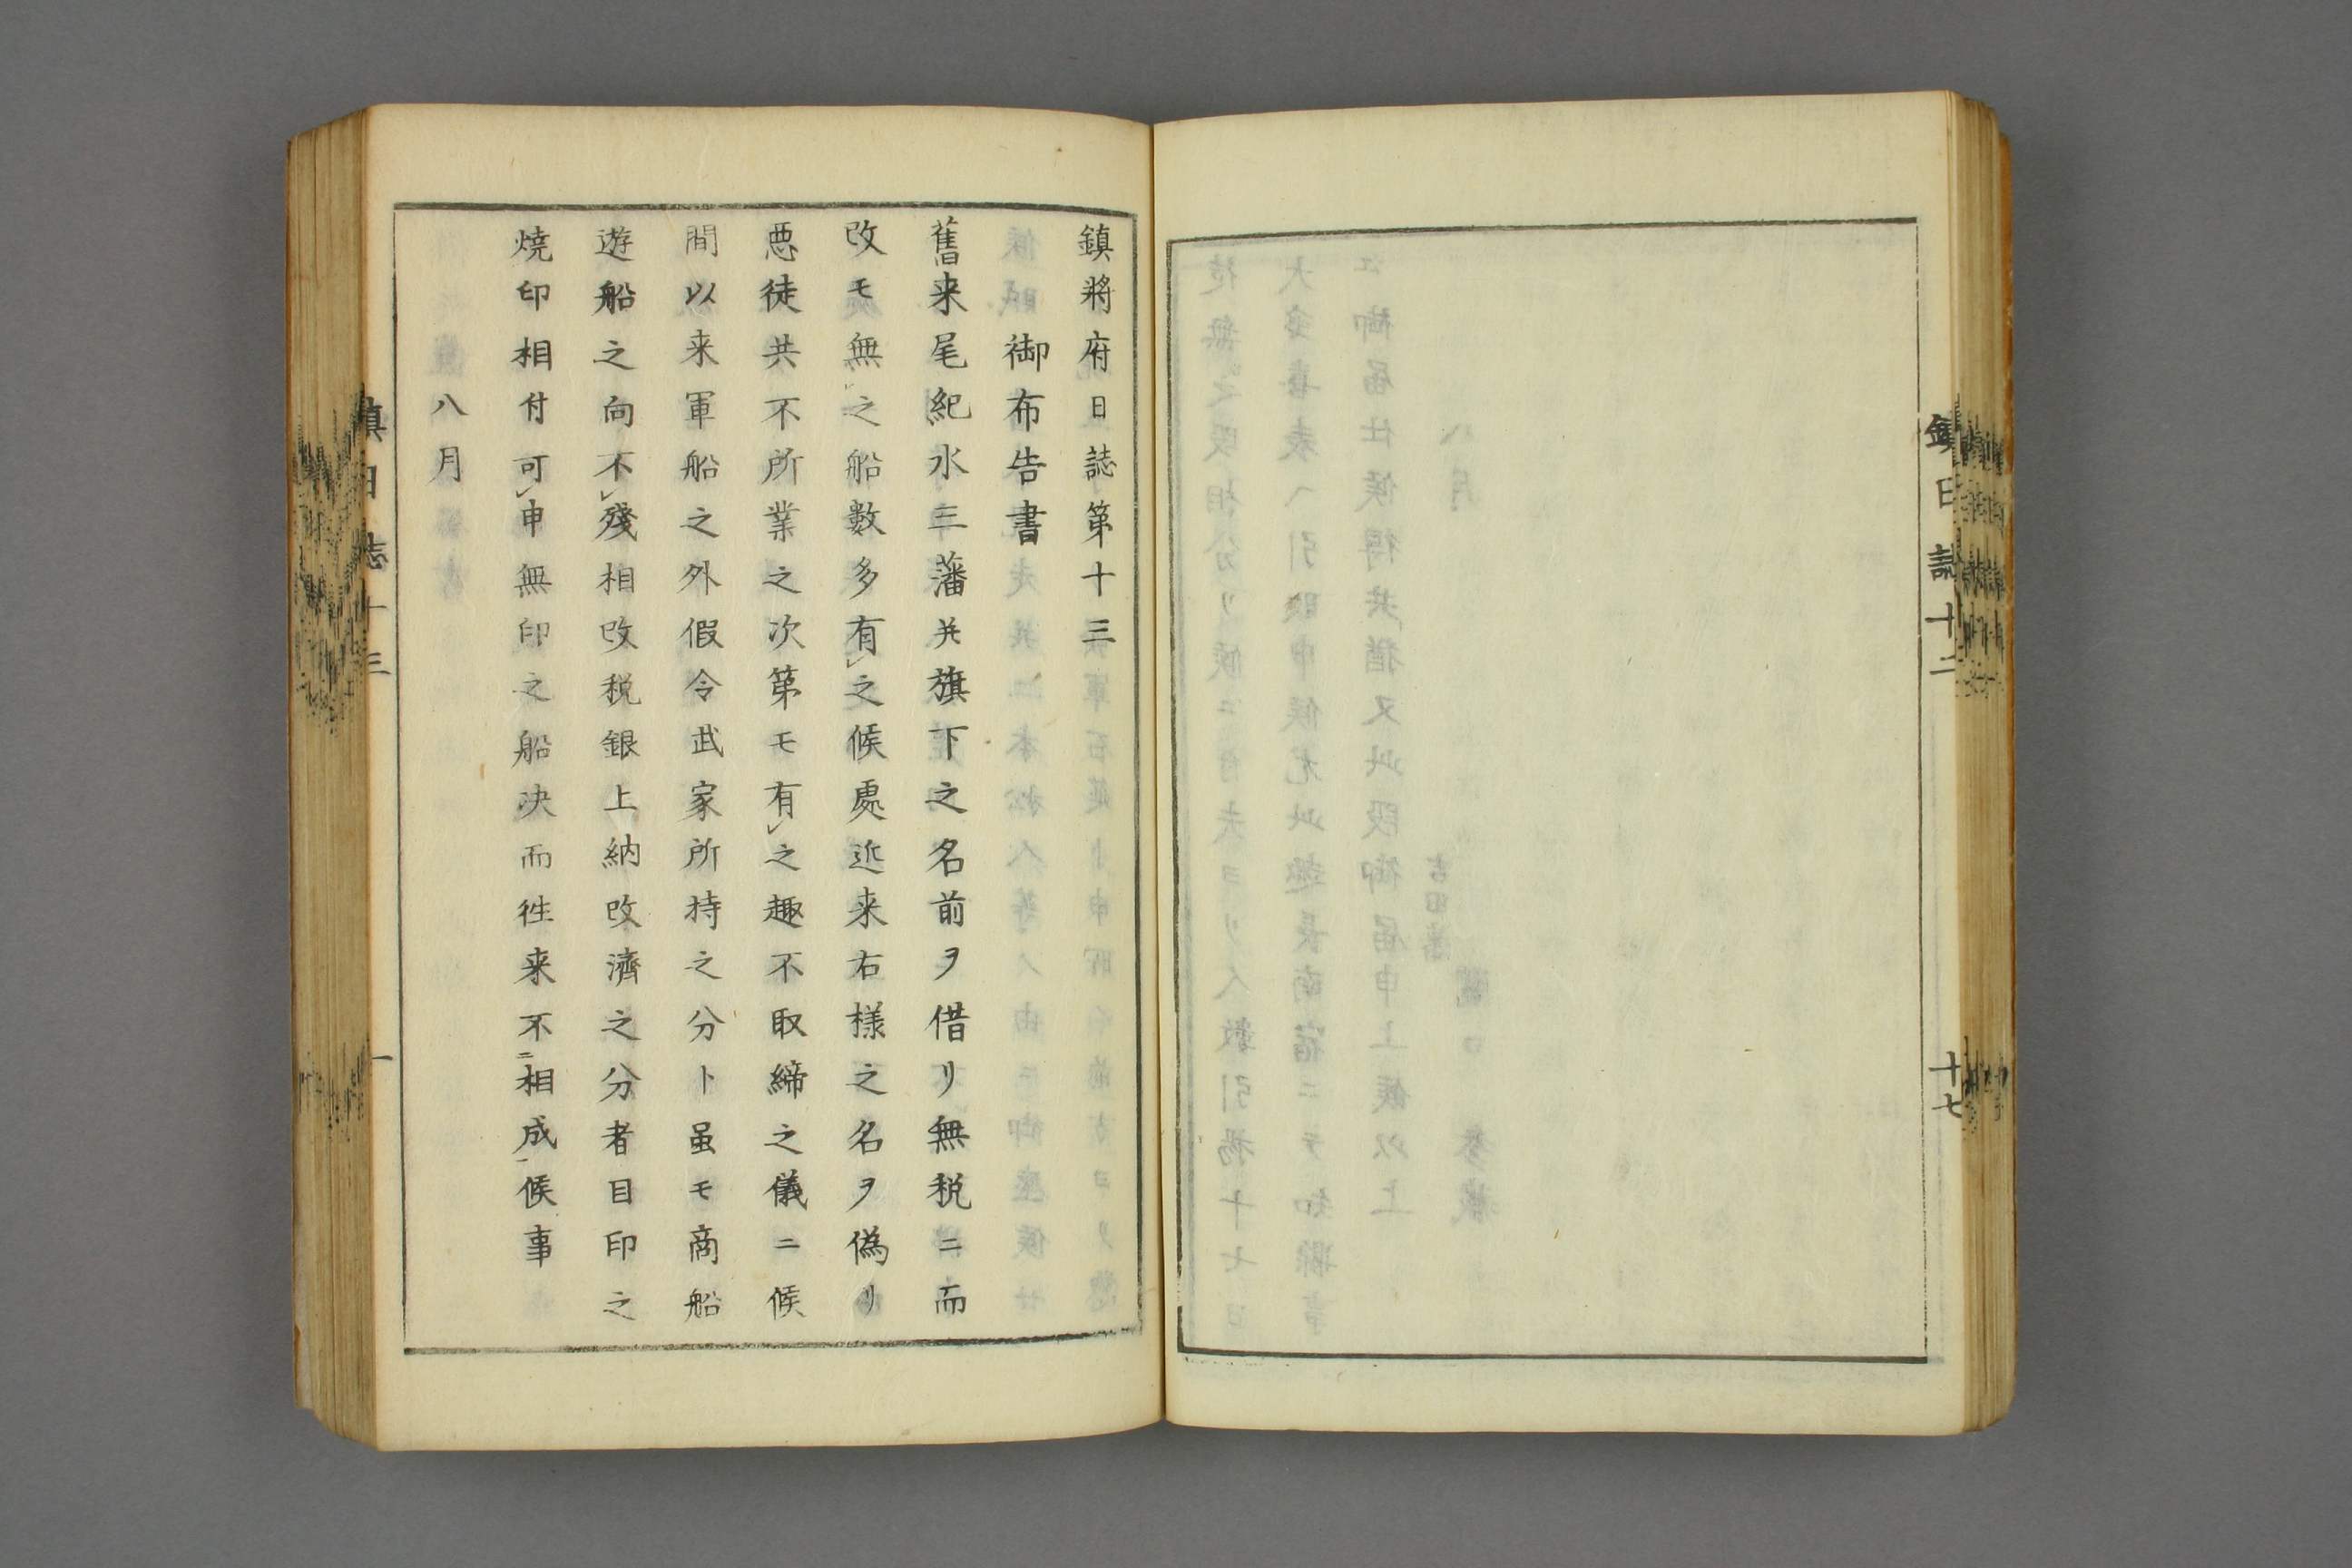 鎮日誌十二
十七
鎮將府日誌第十三
御布告書
舊来尾紀水三藩并旗下之名前ヲ借リ無税ニ而
改モ無㆑之船數多有㆑之候處近来右樣之名ヲ偽リ
悪徒共不所業之次第モ有㆑之趣不取締之儀ニ候
間以来軍船之外假令武家所持之分ト虽モ商船
遊船之向不㆑殘相改税銀上納改濟之分者目印之
燒印相付可㆑申無印之船決而徃来不㆓相成㆒候事
八月
鎮日誌十三
一